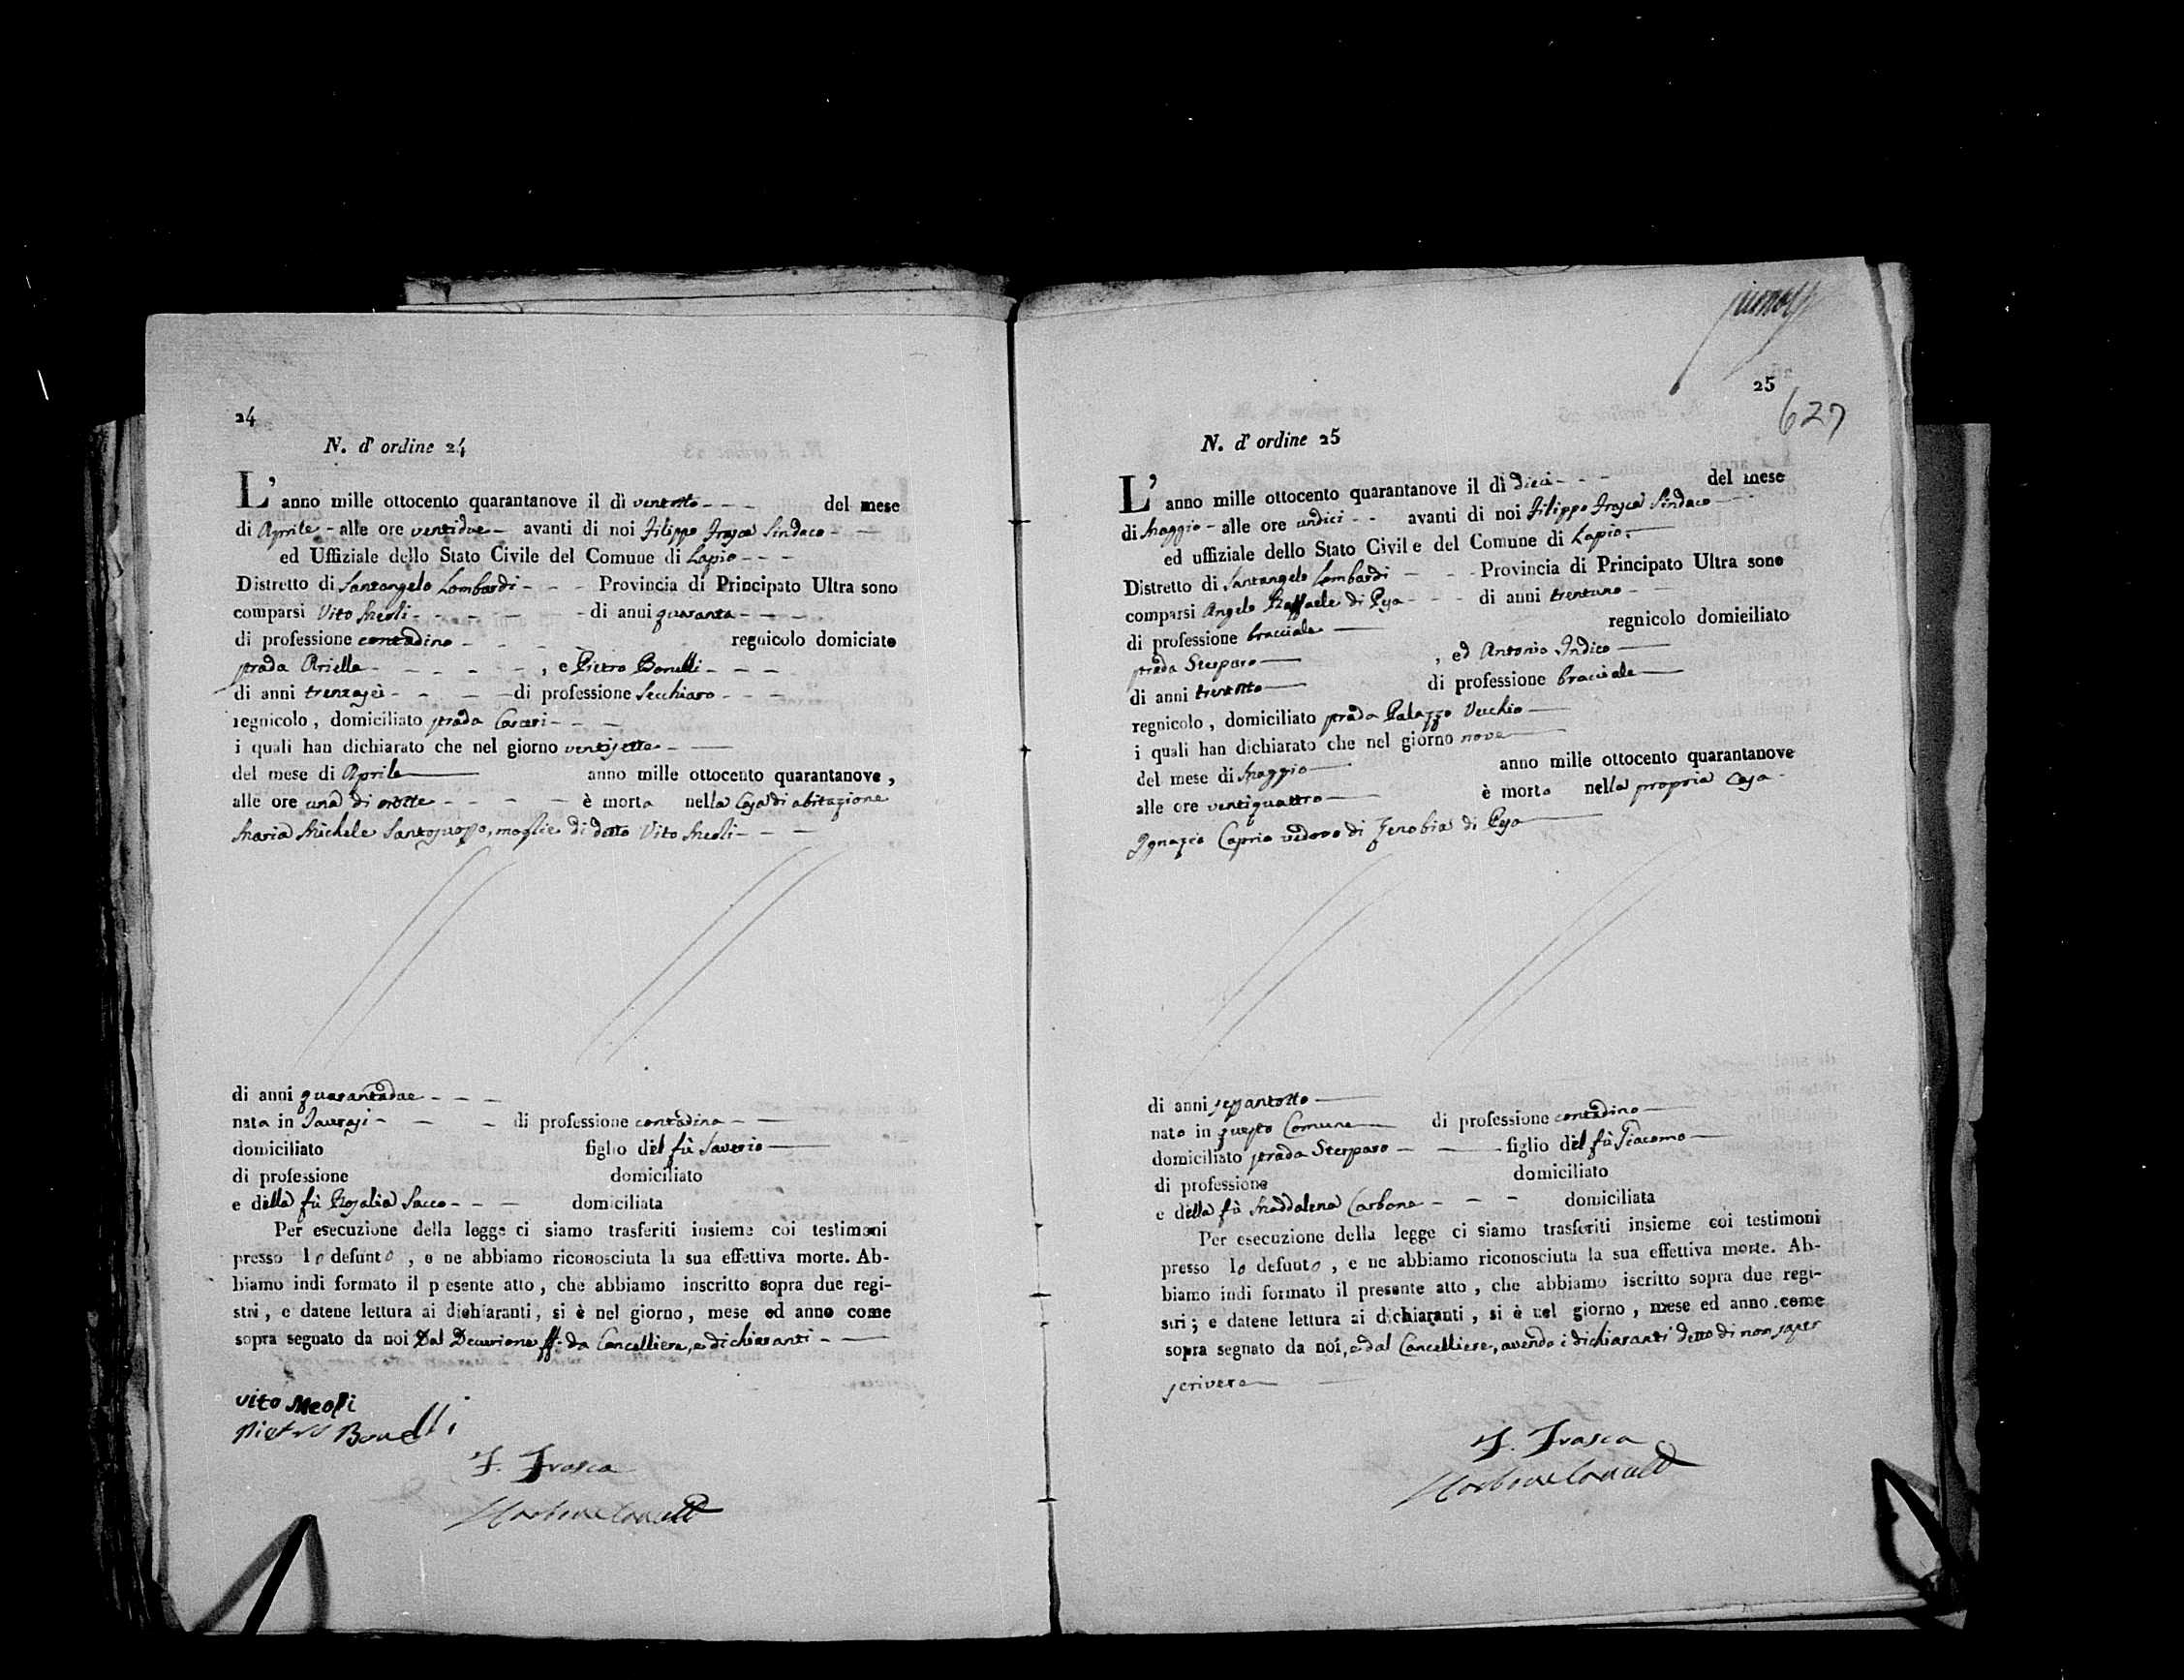 24
N. d' ordine 24
L' anno mille ottocento quarantanove il dì ventotto - - - del mese
di Aprile - alle ore ventidue - avanti di noi Filippo Frasca Sindaco - -
ed Uffiziale dello Stato Civile del Comune di Lapio - - -
Distretto di Santangelo Lombardi - - - Provincia di Principato Ultra sono
comparsi Vito Meoli - - - - - di anni quaranta - - -
di professione contadino - - - - - regnicolo domiciato
strada Ariella - - - - - , e Pietro Bonelli - - - -
di anni trentasei - - - - di professione Secchiaro - - -
regnicolo , domiciliato strada Carceri - - -
i quali han dichiarato che nel giorno ventisette - —
del mese di Aprile — anno mille ottocento quarantanove ,
alle ore una di notte - - - - - è morta nella Casa di abitazione
Maria Michele Santosuosso, moglie di detto Vito Meoli - - -
di anni quarantadue - - -
nata in Taurasi - - - di professione contadina - —
domiciliato figlio del fù Saverio —
di professione domiciliato
e della fù Rosalia Sacco - - - domiciliata
Per esecuzione della legge ci siamo trasferiti insieme coi testimoni
presso lo defunto , e ne abbiamo riconosciuta la sua effettiva morte. Ab-
biamo indi formato il p esente atto , che abbiamo inscritto sopra due regi-
stri , e datene lettura ai dichiaranti , si è nel giorno , mese ed anno come
sopra segnato da noi Dal Decurione ff: da Cancelliere, e dichiaranti - —
Vito Meoli
Pietro Bonelli
F. Frasca
25
627
N. d' ordine 25
L' anno mille ottocento quarantanove il dì dieci - - - del mese
di Maggio - alle ore undici - - avanti di noi Filippo Frasca Sindaco —
ed uffiziale dello Stato Civile del Comune di Lapio. —
Distretto di Santangelo Lombardi — - - Provincia di Principato Ultra sono
comparsi Angelo Raffaele di Peso - - - di anni trentuno - -
di professione bracciale — regnicolo domieiliato
strada Sterparo — , ed Antonio Indico —
di anni trentotto — di professione bracciale —
regnicolo , domiciliato strada Palazzo Vecchio —
i quali han dichiarato che nel giorno nove —
del mese di Maggio — anno mille ottocento quarantanove
alle ore ventiquattro — è morto nella propria casa -
Ignazio Caprio vedovo di Zenobia di Peso —
di anni sessantotto —
nato in questo Comune — di professione contadino —
domiciliato strada Sterparo - — figlio del fù Giacomo —
di professione domiciliato
e della fù Maddalena Carbone - - - domiciliata
Per esecuzione della legge ci siamo trasferiti insieme coi testimoni
presso lo defunto , e ne abbiamo riconosciuta la sua effettiva morte. Ab-
biamo indi formato il presente atto , che abbiamo iscritto sopra due regi-
stri ; e datene lettura ai dichiaranti , si è nel giorno , mese ed anno come
sopra segnato da noi, e dal Cancelliere, avendo i dichiaranti detto di non saper
scrivere —
F. Frasca